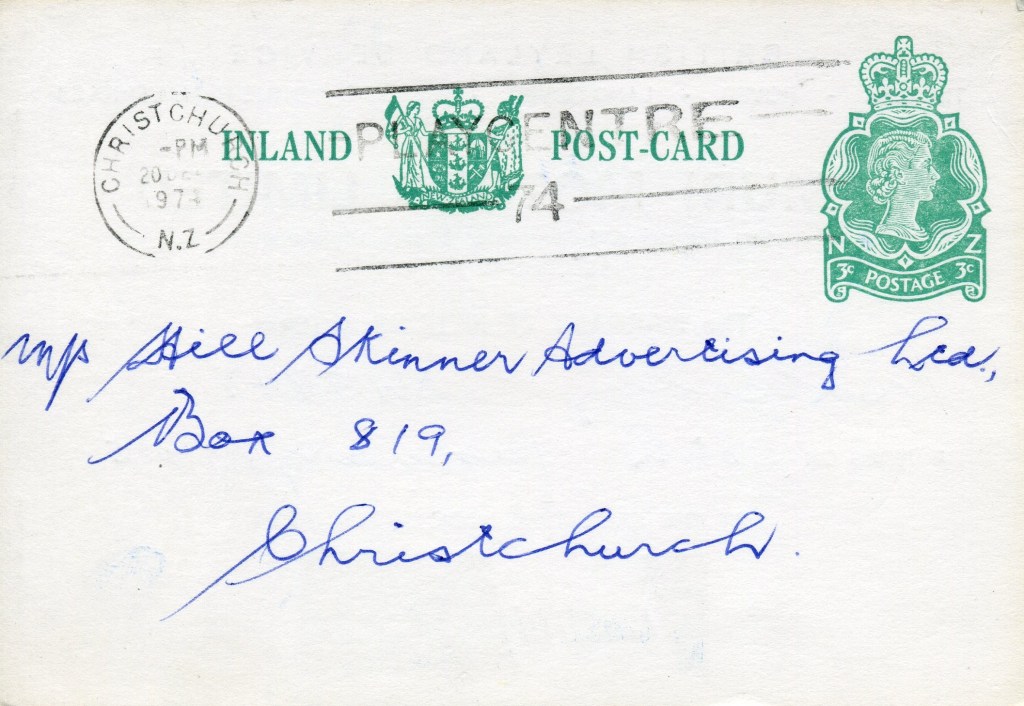 CHRISTCHURCH
-PM
20
1974
N.Z
INLAND POST-CARD
NEW ZEALAND
PLAYCENTRE
74
N Z
3c POSTAGE 3c
M/s Hill Skinner Advertising Ltd.,
Box 819,
Christchurch.